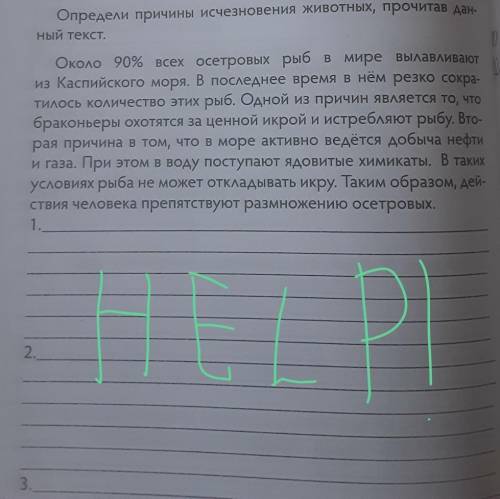 Определи причины исчезновения животных, прочитав дан-
ный текст.
Около 90% всех осетровых рыб в мире вылавливают
из Каспийского моря. В последнее время в нём резко сокра-
тилось количество этих рыб. Одной из причин является то, что
браконьеры охотятся за ценной икрой и истребляют рыбу. Вто-
рая причина в том, что в море активно ведётся добыча нефти
и газа. При этом в воду поступают ядовитые химикаты. В таких
условиях рыба не может откладывать икру. Таким образом, дей-
ствия человека препятствуют размножению осетровых.
1.
HELP!
2.
3.